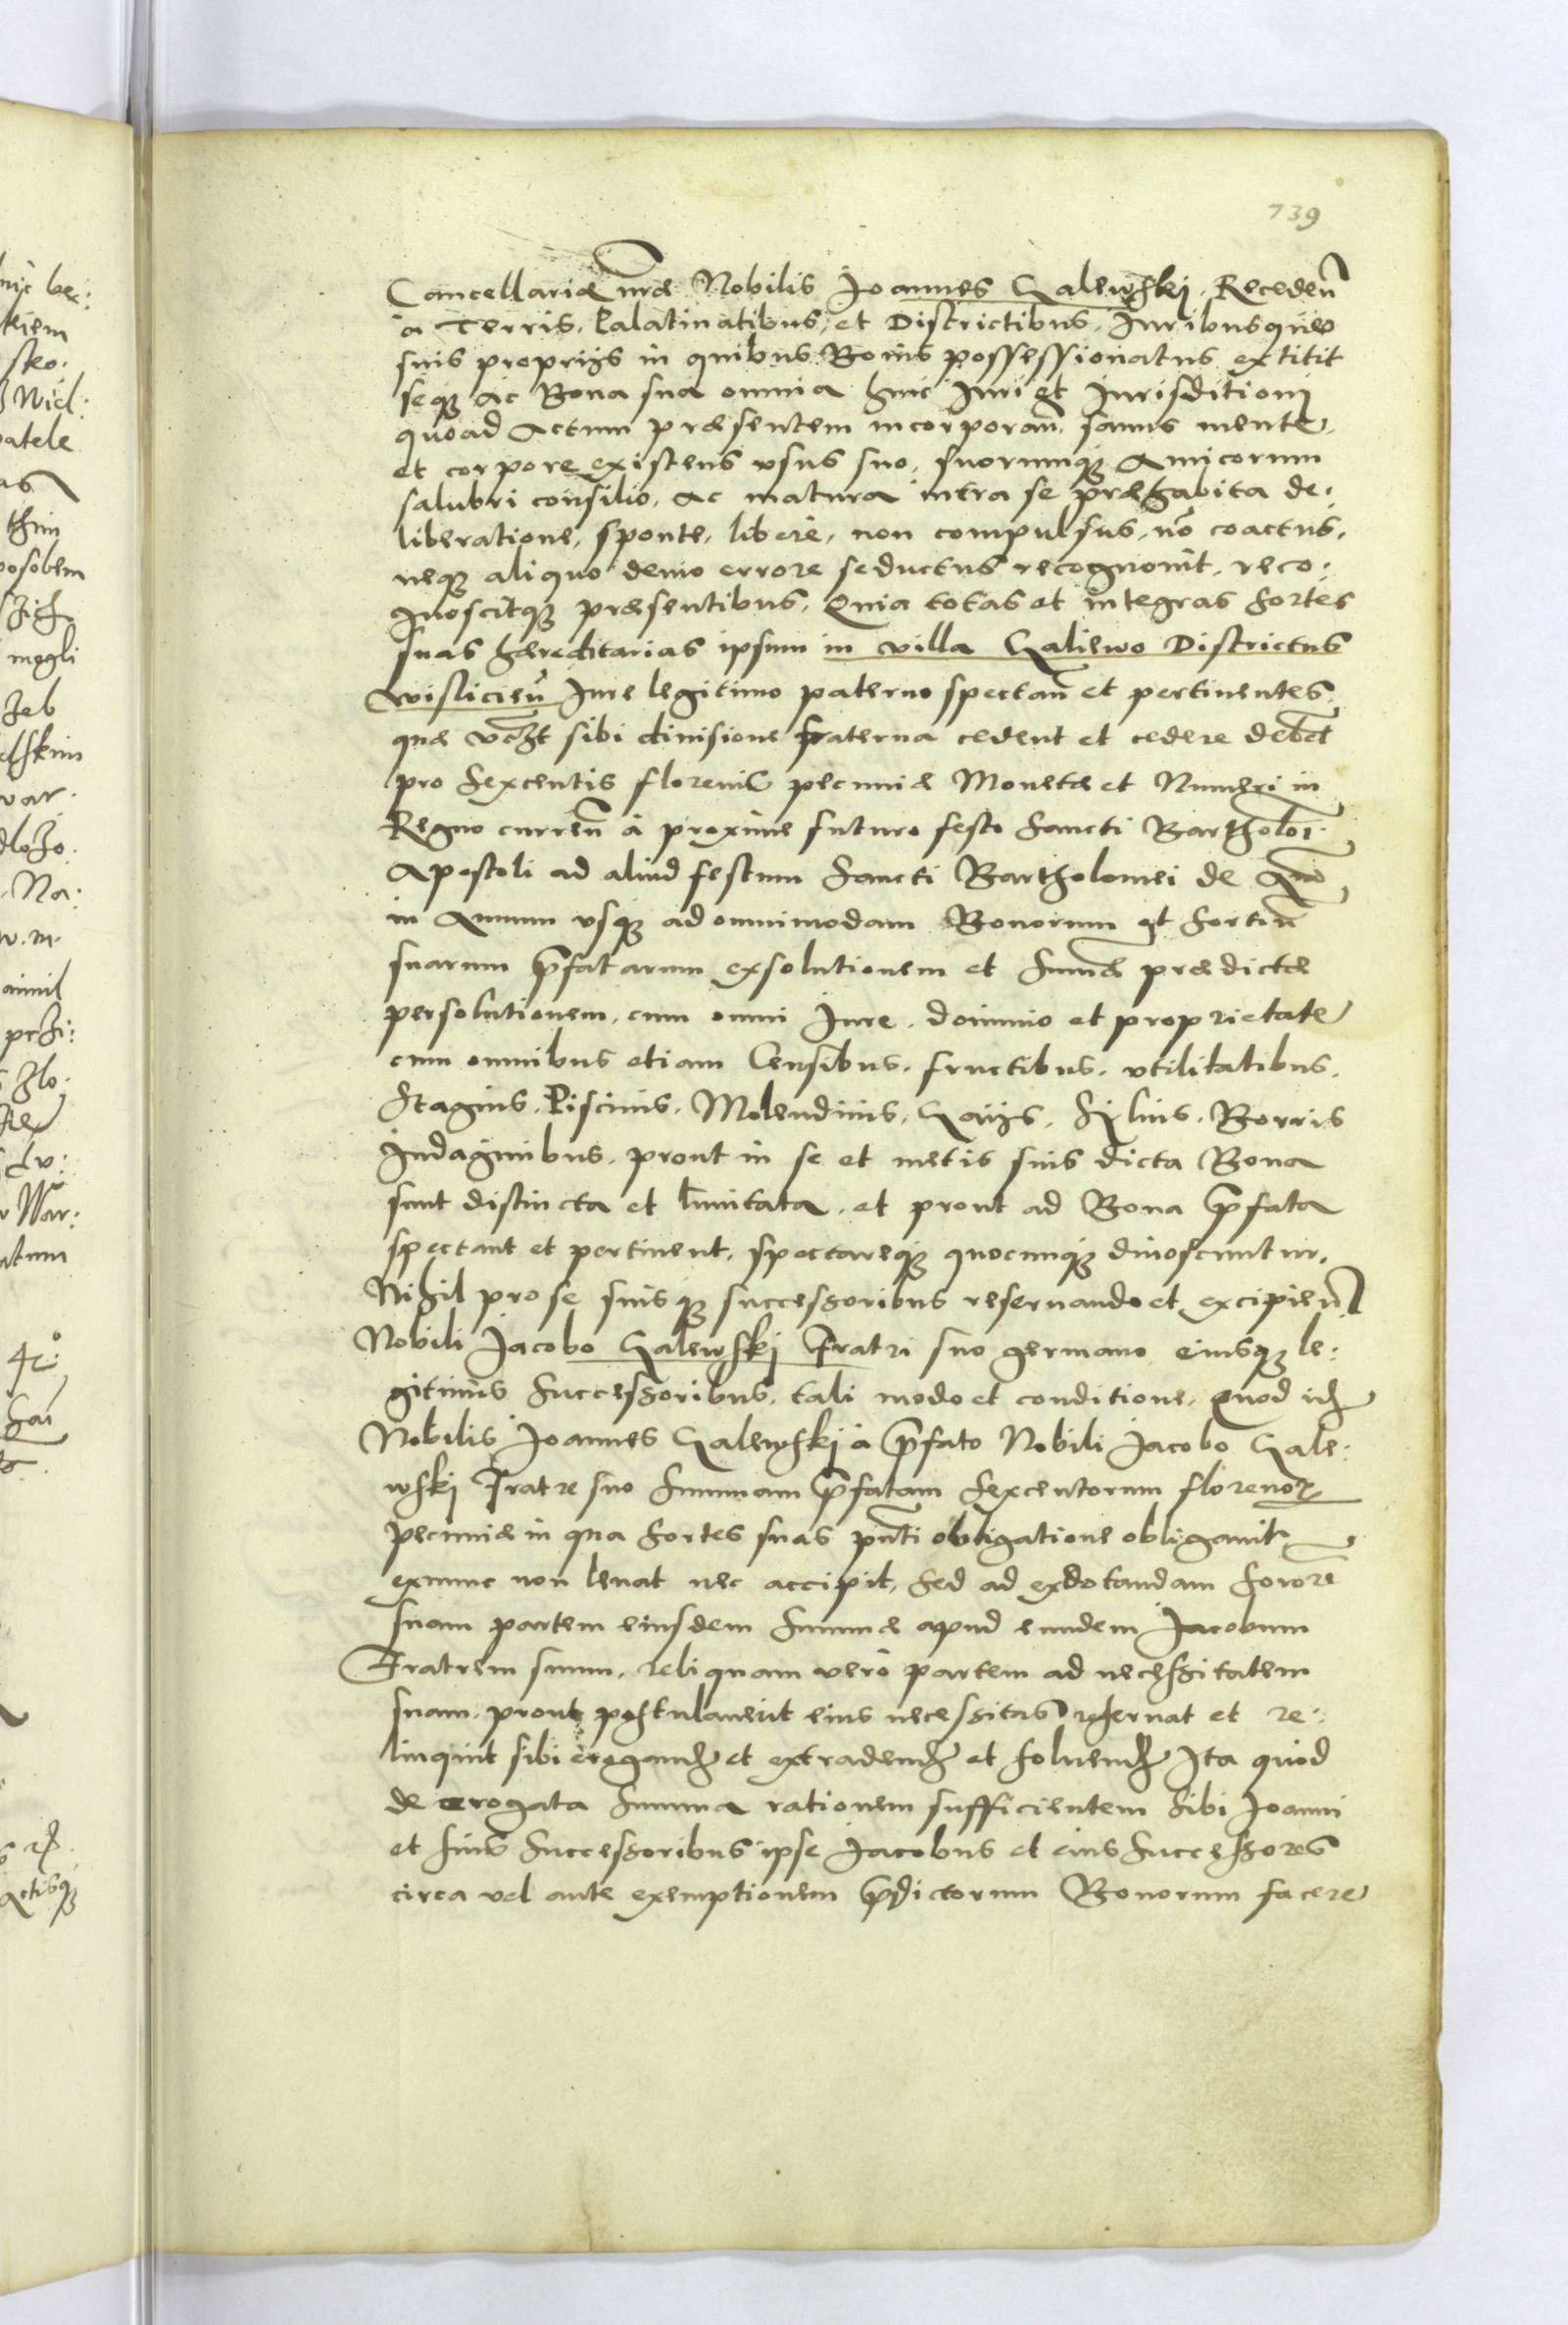 739
Cancellariæ nr̃æ Nobilis Joannes Galewski. Recedeñ
à Terris, Palatinatibus, et Districtibus, Juribusque
suis proprijs in quibus Bonis possessionatus extitit
seq3 ac Bona sua omnia huic Juri et Jurisditioni
quoad Actum præsentem incorporañ, sanus mente,
et corpore existens vsus suo, suorumq3 Amicorum
salubri consilio, ac matura intra se præhabita de:
liberatione, sponte, libere, non compulsus, nõ coactus,
neq3 aliquo demo errore seductus recognouit, reco:
gnoscitq3 præsentibus, Quia totas et integras sortes
suas hæreditarias ipsum in villa Galiewo Districtus
Wislicieñ Jure legitimo paterno spectañ et pertinentes,
quæ vczt sibi diuisione fraterna cedent et cedere debẽt
pro sexcentis florenis pecuniæ Monetæ et Numeri in
Regno curreñ à proxime futuro festo Sancti Bartholoi:
Apostoli ad aliud festum Sancti Bartholomei de Ano
in Annum vsq3 ad omnimodam Bonorum et sortiũ
suarum p̃fatarum exsolutionem et sum̃æ prædictæ
persolutionem, cum omni Jure, dominio et proprietate
cum omnibus etiam Censibus, fructibus, vtilitatibus,
Stagnis, Piscinis, Molendinis, Gaijs, Syluis, Borris
Indaginibus, prout in se et metis suis dicta Bona
sunt distincta et limitata, et prout ad Bona p̃fata
spectant et pertinent, spectareq3 quocunq3 dinoscuntur,
Nihil pro se suisq3 successoribus reseruando et excipieñ
Nobili Jacobo Galewski Fratri suo germano eiusq3 le:
gitimis Successoribus, tali modo et conditione, Quod idẽ
Nobilis Joannes Galewski à p̃fato Nobili Jacobo Gale:
wski Fratre suo Summam p̃fatam sexcentorum florenor
pecuniæ in qua sortes suas pñti obligatione obligauit
exnunc non leuat nec accipit, sed ad exdotandam sororẽ
suam partem eiusdem Summæ apud eundem Jacobum
Fratrem suum, reliquam vero partem ad necessitatem
suam, prout postulauerit eius necessitas reseruat et re:
linquit sibi erogand et extradend et soluend Ita quod
de erogata summa rationem sufficientem sibi Joanni
et suis Successoribus ipse Jacobus et eius Successores
circa vel ante exemptionem p̃dictorum Bonorum facere